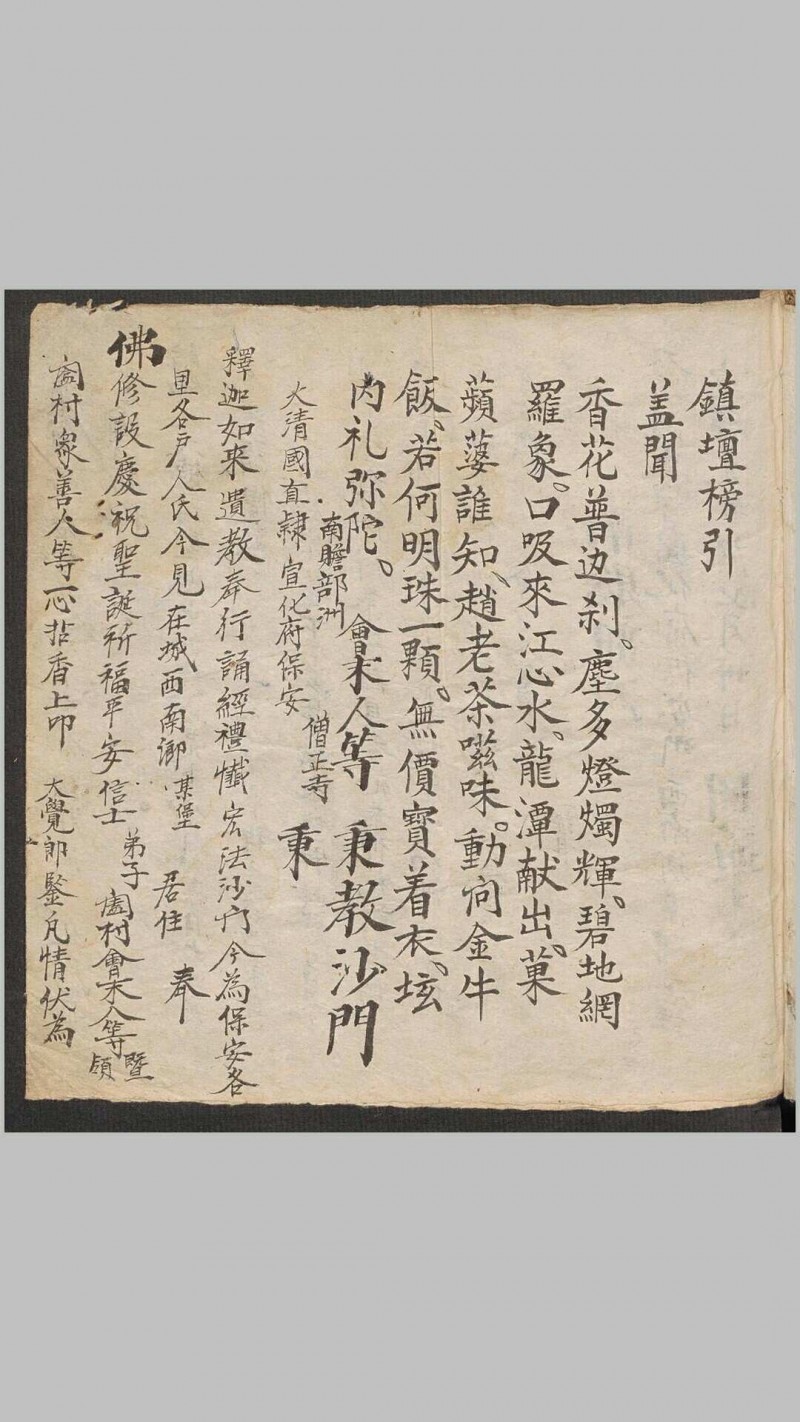 鎮壇榜引
盖聞
香花普边刹。塵多燈燭輝、碧地網
羅象。口吸來江心水、龍潭献出、菓
蘋蔢誰知、趙老茶嗞味。動向金牛
飯、若何明珠一顆。無價寶着衣、坛
内礼弥陀。會末人等 秉教沙門
南贍部洲 僧正寺 秉
大清國直隸宣化府保安
釋迦如来遺教奉行誦經禮懺宏法沙门今為保安各
里各户人氏今見在城西南鄉某堡 居住 奉
佛修設慶祝聖誕祈福平安信士弟子闔村會末人等暨領
闔村衆善人等一心拈香上叩 大覺郎鑒凡情伏為